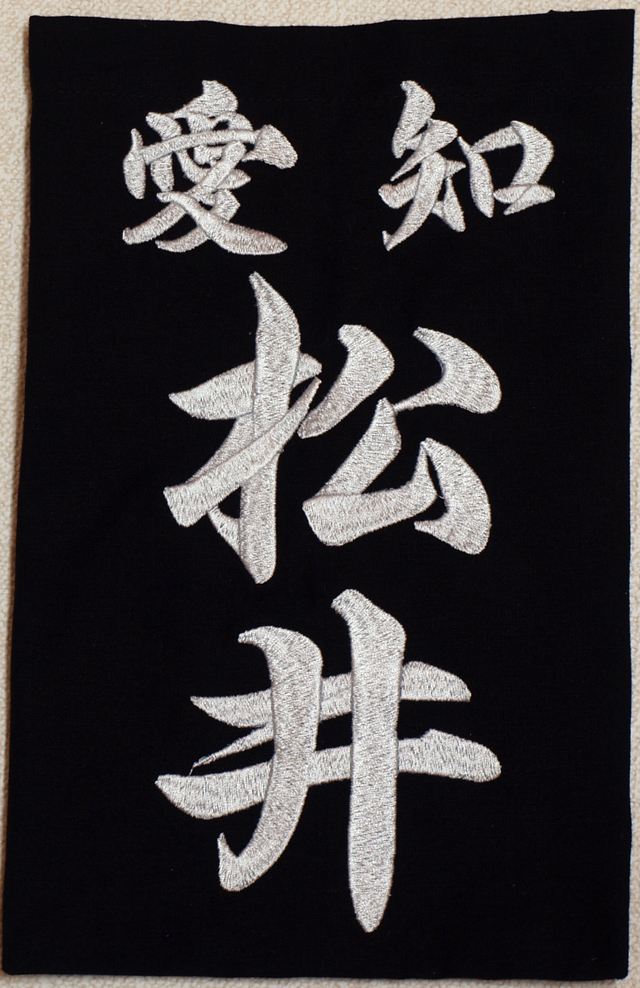 愛知
松井